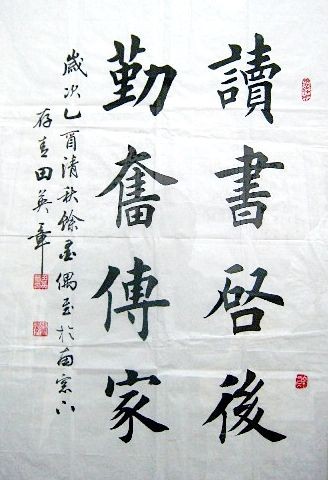 讀書啓後
勤奮傳家
歲次乙酉清秋餘墨偶至於南窓下
存青田英章